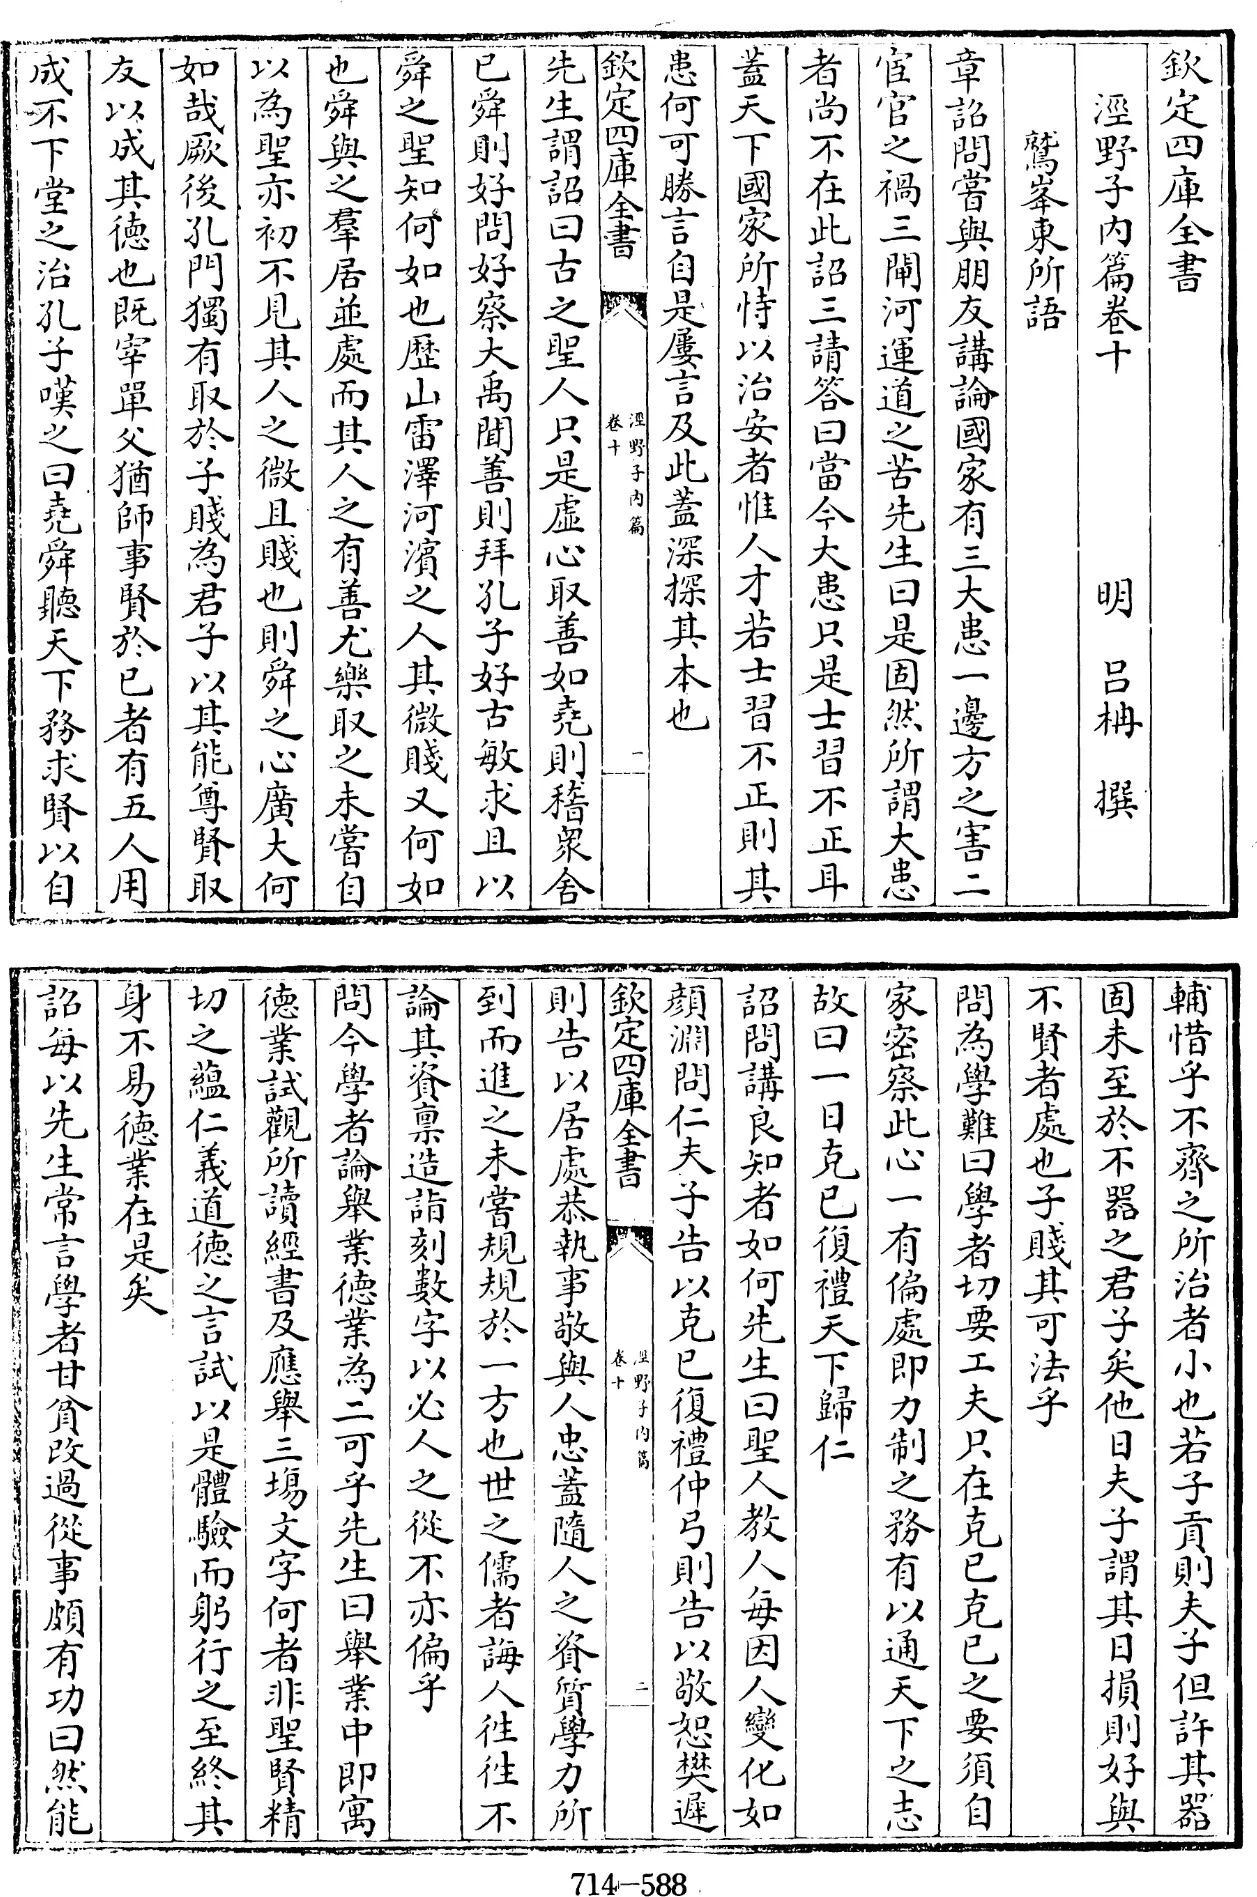 欽定四庫全書
涇野子內篇卷十
明 呂柟 撰
鷲峯東所語
章詔問嘗與朋友講論國家有三大患一邊方之害二
宦官之禍三閘河運道之苦先生曰是固然所謂大患
者尚不在此詔三請答曰當今大患只是士習不正耳
蓋天下國家所恃以治安者惟人才若士習不正則其
患何可勝言自是屢言及此蓋深探其本也
欽定四庫全書
涇野子內篇
卷十
一
先生謂詔曰古之聖人只是虛心取善如堯則稽衆舍
已舜則好問好察大禹聞善則拜孔子好古敏求且以
舜之聖知何如也歷山雷澤河濱之人其微賤又何如
也舜與之羣居並處而其人之有善尤樂取之未嘗自
以為聖亦初不見其人之微且賤也則舜之心廣大何
如哉厥後孔門獨有取於子賤為君子以其能尊賢取
友以成其德也既宰單父猶師事賢於已者有五人用
成不下堂之治孔子嘆之曰堯舜聽天下務求賢以自
輔惜乎不齊之所治者小也若子貢則夫子但許其器
固未至於不器之君子矣他日夫子謂其日損則好與
不賢者處也子賤其可法乎
問為學難曰學者切要工夫只在克已克已之要須自
家密察此心一有偏處即力制之務有以通天下之志
故曰一日克已復禮天下歸仁
詔問講良知者如何先生曰聖人教人每因人變化如
顏淵問仁夫子告以克已復禮仲弓則告以敬恕樊遲
欽定四庫全書
涇野子內篇
卷十
二
則告以居處恭執事敬與人忠蓋隨人之資質學力所
到而進之未嘗規規於一方也世之儒者誨人徃徃不
論其資稟造詣刻數字以必人之從不亦偏乎
問今學者論舉業德業為二可乎先生曰舉業中即寓
德業試觀所讀經書及應舉三塲文字何者非聖賢精
切之蘊仁義道德之言試以是體驗而躬行之至終其
身不易德業在是矣
詔每以先生常言學者甘貧改過從事頗有功曰然能
714-588